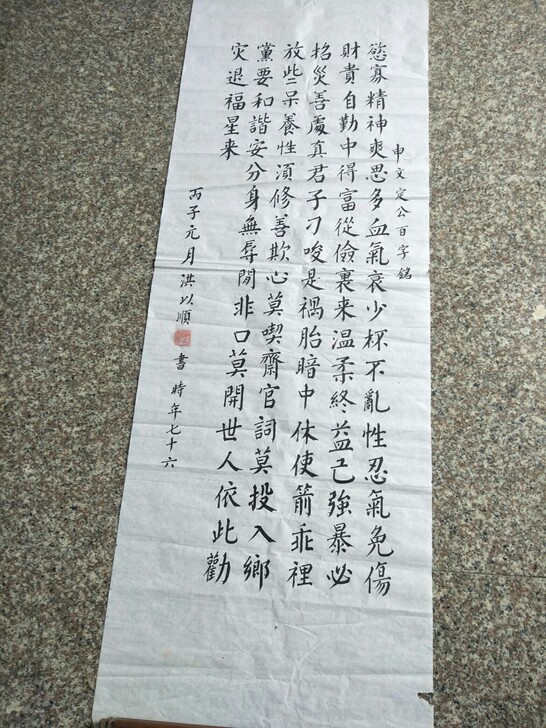 申文定公百字銘
慾寡精神爽思多血氣衰少杯不亂性忍氣免傷
財貴自勤中得富從儉裏来温柔終益己強暴必
招災善處真君子刁唆是禍胎暗中休使箭乖裡
放些呆養性須修善欺心莫喫齋官詞莫投入鄉
黨要和諧安分身無辱閒非口莫開世人依此勸
灾退福星来
丙子元月洪以順
書時年七十六